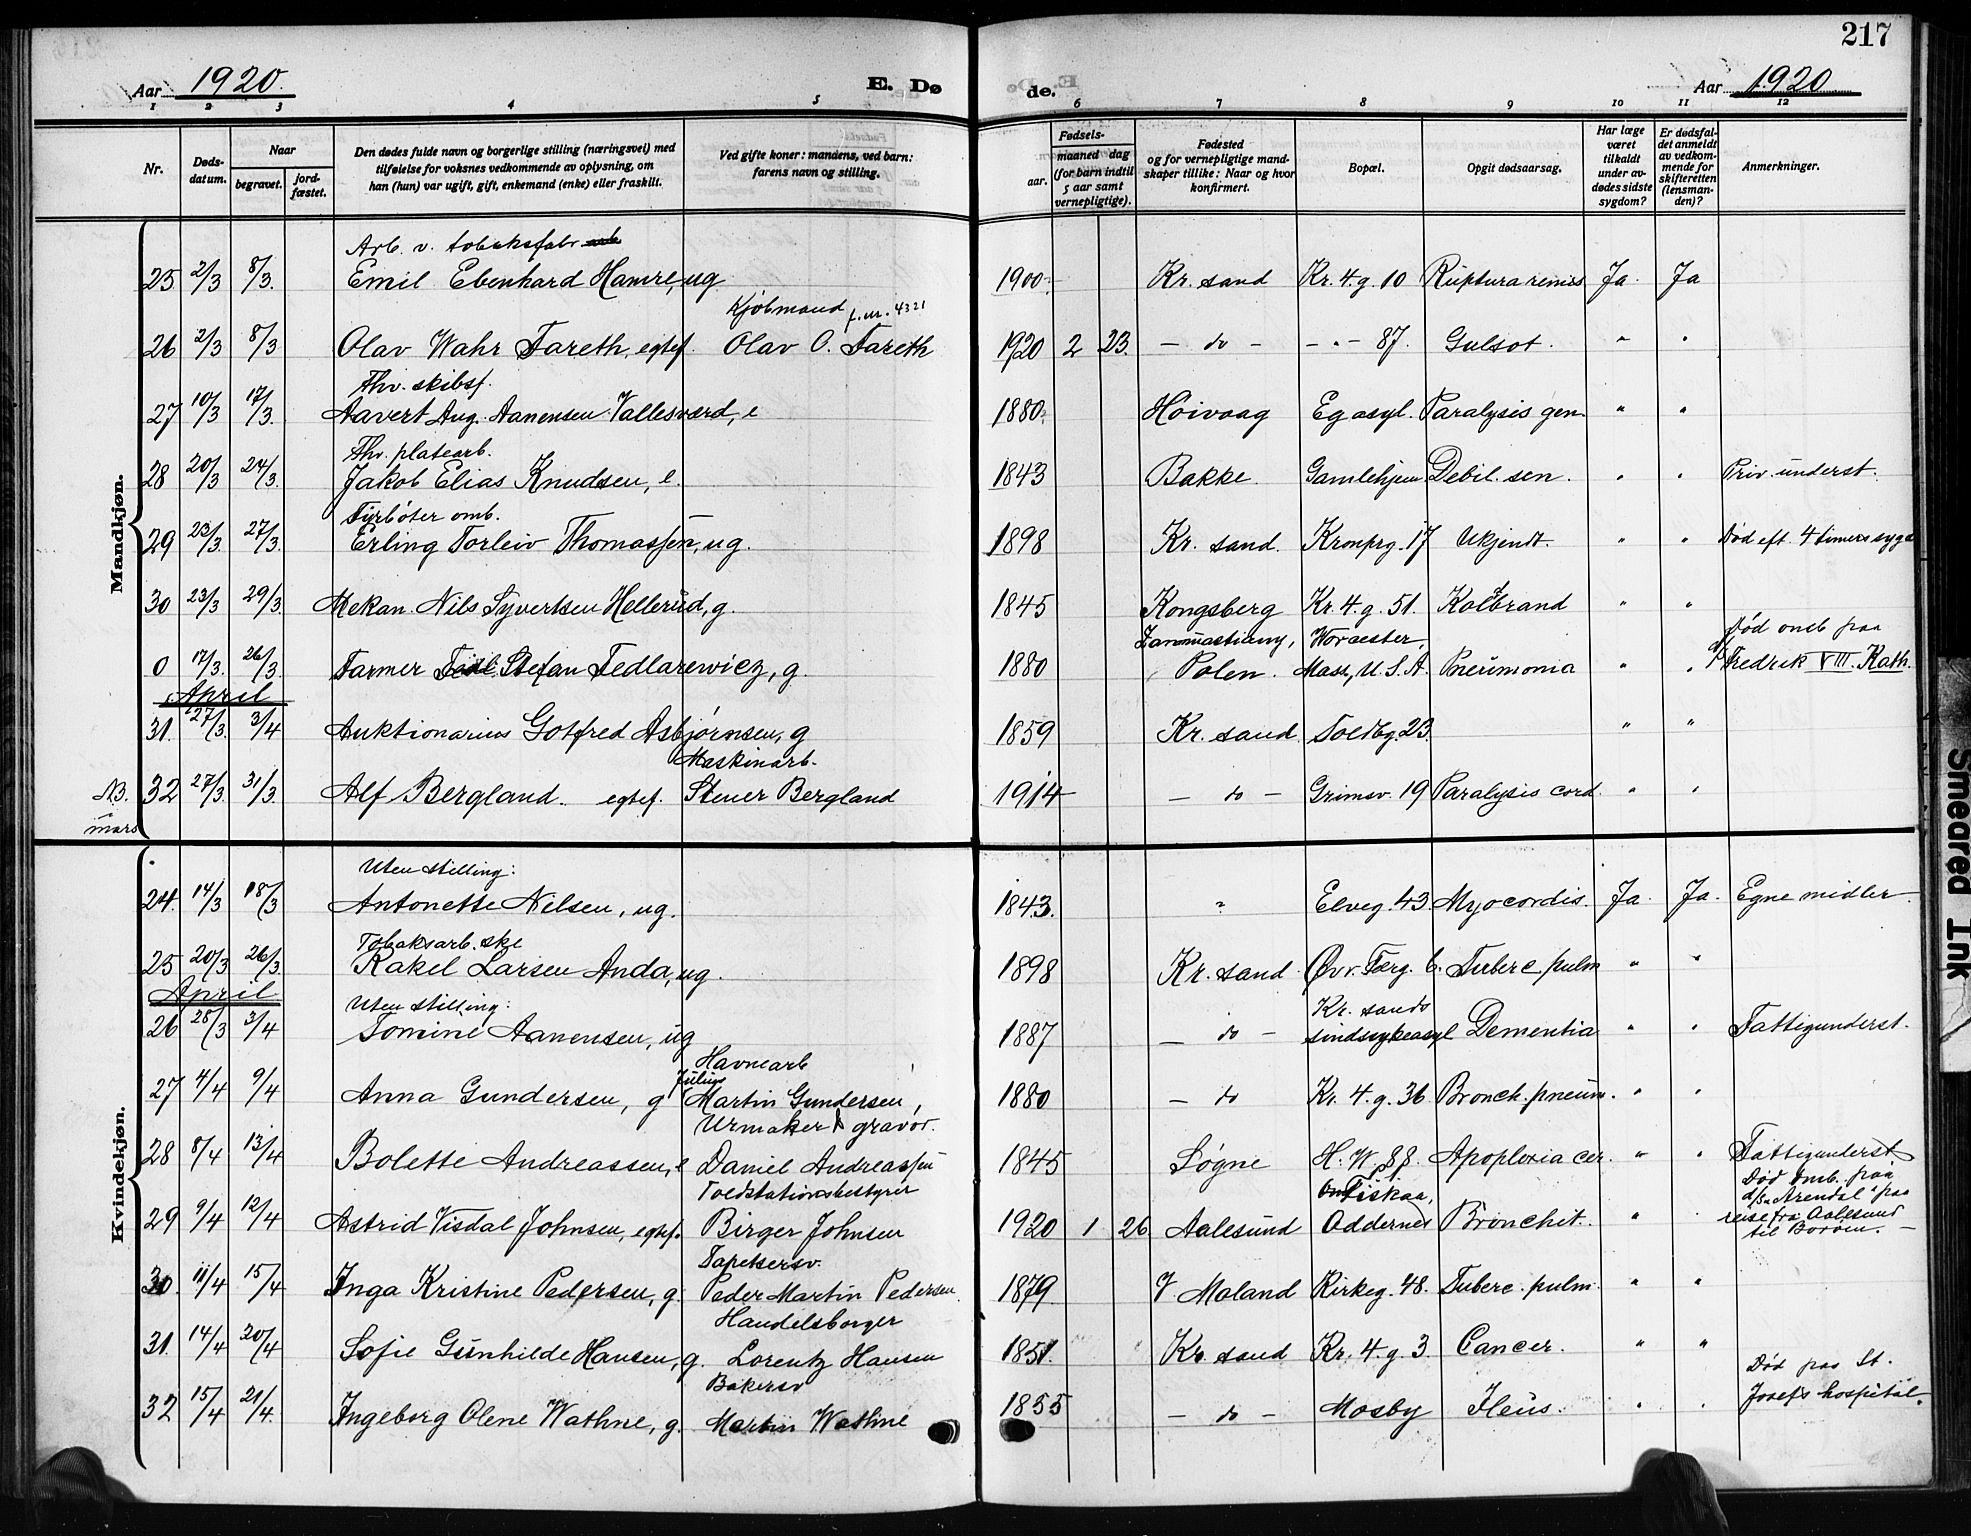 217
Aar 1920. E. Dø de. Aar 1920
1 2 3 4 5 6 7 8 9 10 11 12
Nr. Døds-datum. Naar begravet. jord-fæstet. Den dødes fulde navn og borgerlige stilling (næringsvei) med tilføielse for voksnes vedkommende av oplysning, om han (hun) var ugift, gift, enkemand (enke) eller fraskilt. Ved gifte koner: mandens, ved barn: farens navn og stilling. Fødsels- aar. maaned dag (for barn indtil 5 aar samt vernepligtige). Fødested og for vernepligtige mandskaper tillike: Naar og hvor konfirmert. Bopæl. Opgit dødsaarsag. Har læge været tilkaldt under avdødes sidste sygdom? Er dødsfaldet anmeldt av vedkommende for skifteretten (lensmanden)? Anmerkninger.
Mandkjøn.
Arb. v. tobaksfabr
25 2/3 8/3. Emil Ebenhard Hamre, ug 1900. Kr. sand Kr. 4. g. 10 Ruptura renis Ja. Ja
Kjøbmand f. nr. 4321
26 2/3 8/3 Olav Wahr Fareth, egtef. Olav O. Fareth 1920 2 23. — do — — " — 87. Gulsot. " "
Fhv. skibsf.
27 10/3 17/3. Aavert Aug. Aanensen Vallesværd, e 1880. Høivaag Eg asyl. Paralysis gen. " "
Fhv. platearb.
28 20/3 24/3. Jakob Elias Knudsen, e. 1843 Bakke Gamlehjem Debil. sen. " " Priv. underst.
Fyrbøter omb.
29 23/3. 27/3. Erling Torleiv Thomassen, ug. 1898 Kr. sand. Kronprg. 17 Ukjendt. " " Død eft. 4 timers sygd
30 23/3 29/3 Mekan. Nils Syvertsen Hellerud, g. 1845 Kongsberg Kr. 4. g. 51. Koldbrand " "
Worcester, Død omb paa
0 17/3. 26/3. Farmer Stefan Fedlarewicz, g. 1880 Polen. Mass, U. S. A. Pneumonia " " Fredrik VIII. Kath.
April
31. 27/3. 3/4 Auktionarius Gotfred Asbjørnsen, g 1859 Kr. sand. Toldbg. 23. " "
Maskinarb.
N3. 32 27/3. 31/3. Alf Bergland. egtef. Stener Bergland 1914 — do — Grimsv. 19 Paralysis cord. " "
mars
Kvindekjøn.
Uten stilling:
24. 14/3 18/3 Antonette Nilsen, ug. 1843. " Elveg. 43. Myocordis. Ja. Ja. Egne midler.
Tobaksarb.ske
25 20/3 26/3. Rakel Larsen Anda, ug. 1898 Kr. sand Øvr. Færg. 6. Tuberc pulm " "
April
Uten stilling: Kr. sands
26 28/3 3/4 Tomine Aanensen, ug 1887 — do — sindssykeasyl Dementia " " Fattigunderst.
Havnearb
Julius
27 4/4 9/4 Anna Gundersen, g Martin Gundersen, 1880 — do Kr. 4. g. 36 Bronch. pneum. " "
Urmaker gravør.
28 8/4 13/4 Bolette Andreassen, e Daniel Andreassen 1845 Søgne H. W. 88. Apoplexia cer. " " Fattigunderst
Toldstationsbestyrer Fiskaa, Død omb. paa d/s "Arendal" paa
29 9/4 12/4 Astrid Visdal Johnsen, egtef. Birger Johnsen 1920 1 26 Aalesund Oddernes Bronchit. " reise fra Aalesund til
Tapetsersv.
30. 11/4 15/4 Inga Kristine Pedersen, g. Peder Martin Pedersen. 1879. V Moland Kirkeg. 48. Tuberc. pulm. " "
Handelsborger
31. 14/4 20/4 Sofie Gunhilde Hansen, g. Lorentz Hansen 1851. Kr. sand Kr. 4. g. 3 Cancer. " "
Bakersv Død paa St.
32 15/4 21/4. Ingeborg Olene Wathne, g. Martin Wathne 1855 — do — Mosby Ileus. " " Josefs hospital.
Smeared Ink